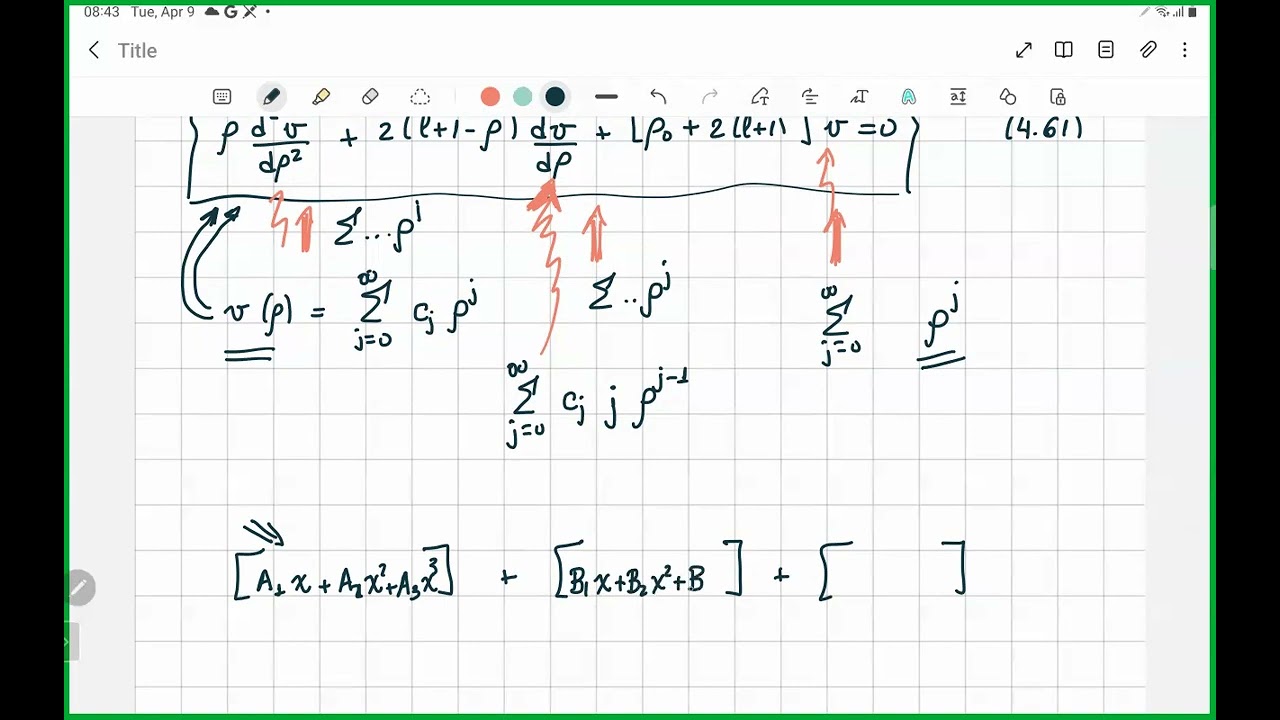 08:43 Tue, Apr 9
Title
ρ d²v/dρ² + 2(l+1-ρ) dv/dρ + [ρ₀ + 2(l+1)] v = 0 (4.61)
Σ...ρ^j
v(ρ) = Σ_{j=0}^{∞} c_j ρ^j Σ..ρ^j Σ_{j=0}^{∞} ρ^j
Σ_{j=0}^{∞} c_j j ρ^{j-1}
[A₁x + A₂x² + A₃x³] + [B₁x + B₂x² + B ] + [ ]